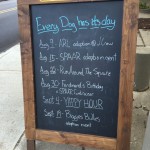 Every Dog has its day
Aug 9 ARL adoption @ J.Crew
Aug 15 SPWAR adoption event
Aug 22 Run Around The Square
Aug 30 Ferdinand's Birthday
Sept 4 YAPPY HOUR
Sept 19 Biggies Bullies
adoption event